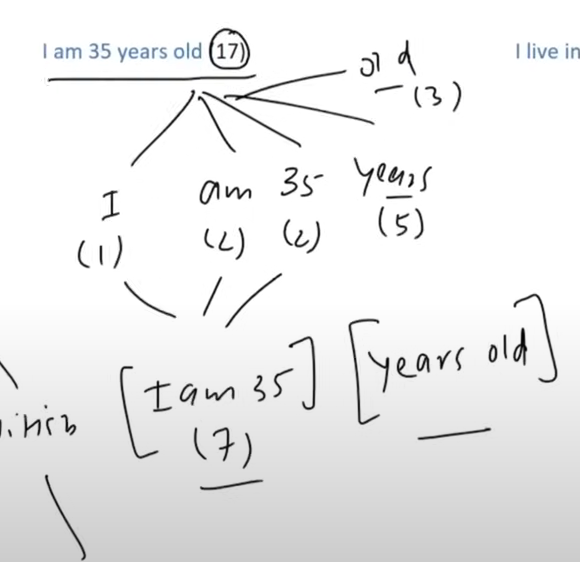 I am 35 years old (17)
I live in
old
(3)
I am 35 years
(1) (2) (2) (5)
[I am 35] [years old]
(7)